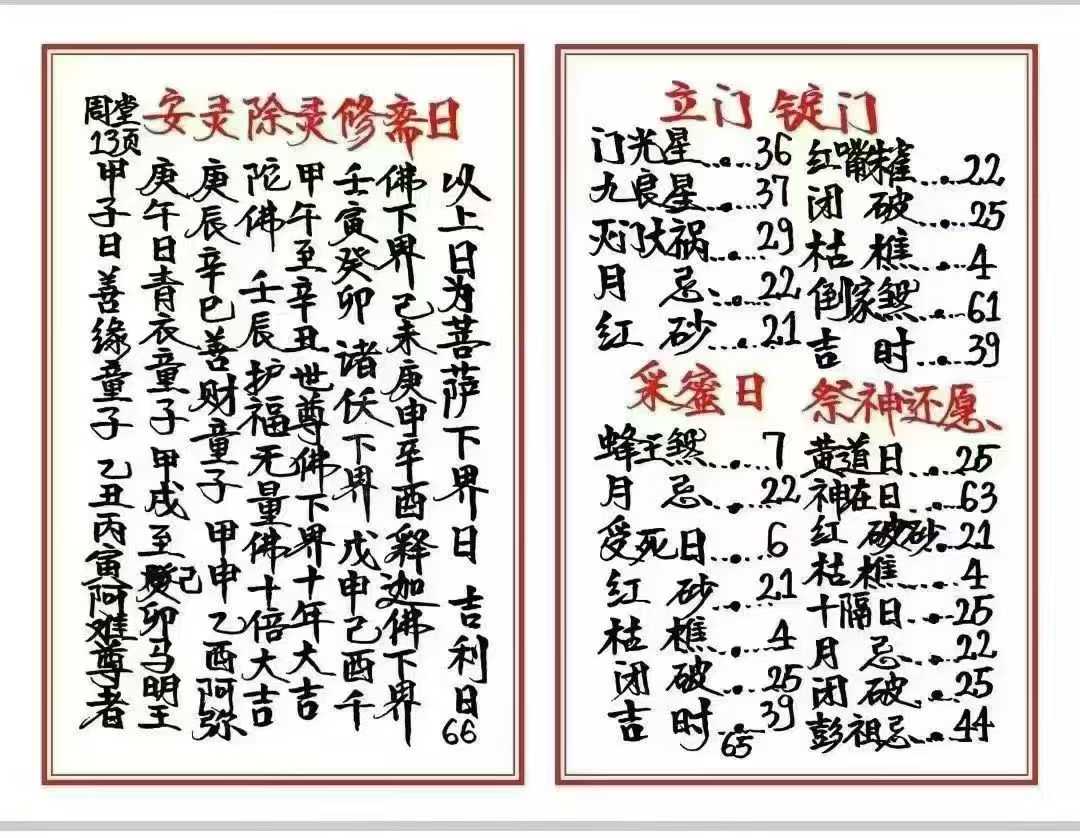 安灵除灵修斋日
周堂
13页
甲子日善缘童子 乙丑丙寅阿难尊者
庚午日青衣童子 甲戌至癸卯马明王
庚辰辛巳善财童子 甲申乙酉阿弥
陀佛 壬辰护福无量佛十倍大吉
甲午至辛丑世尊佛下界十年大吉
壬寅癸卯 诸伏下界 戊申己酉千
佛下界己未庚申辛酉释迦佛下界
以上日为菩萨下界日 吉利日
66
立门 锭门
门光星......36
九良星......37
灭门大祸...29
月 忌......22
红 砂......21
红嘴朱雀...22
闭 破...25
枯 樵...4
倒家煞...61
吉 时...39
采蜜日
蜂王煞......7
月 忌......22
受死日......6
红 砂......21
枯 樵......4
闭 破......25
吉 时......39
祭神还愿
黄道日...25
神在日...63
红 破砂...21
枯樵...4
十隔日...25
月 忌...22
闭 破...25
彭祖忌...44
65